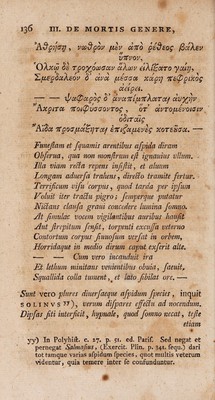 136 III. DE MORTIS GENERE,
Ἀθρήσῃ, νωθρὸν μὲν ἀπὸ ῥέθος βάλεν
ὕπνον.
Ὁλκῷ δὲ τροχόωσαν ἅλων εἰλίξατο γαίῃ,
Σμερδαλέον δ᾽ ἀνὰ μέσσα κάρη πεφρικὸς
ἀείρει.
— — ψαφαρὸς δ᾽ ἀναπίμπλαται αὐχὴν
Ἄκριτα ποιφύσσοντος, ὅτ᾽ ἀντομένοισιν
ὁδίταις
Ἀΐδα προσμάξηται ἐπιζαμενὲς κοτέουσα. —
Funestam et squamis arentibus aspida diram
Observa, qua non monstrum est ignavius ullum.
Illa viam recta repens insistit, et alvum
Longam adversa trahens, directo tramite fertur.
Terrificum visu corpus, quod tarda per ipsum
Volvit iter tractu pigro; semperque putatur
Nictans clausa gravi concedere lumina somno.
At simulac vocem vigilantibus auribus hausit
Aut strepitum sensit, torpenti excussa veterno
Contortum corpus sinuosum versat in orbem,
Horridaque in medio dirum caput exserit alte.
— — Cum vero incanduit ira
Et lethum minitans venientibus obvia, saevit,
Squallida colla tument, et late sibilat ore. —
Sunt vero plures diversaque aspidum species, inquit
SOLINUS yy), verum dispares effectu ad nocendum.
Dipsas siti interficit, hypnale, quod somno necat, teste
etiam
yy) In Polyhist. c. 27. p. 51. ed. Parif. Sed negat et
pernegat Salmasius, (Exercit. Plin. p. 341. sequ.) dari
tot tamque varias aspidum species, quot multis veterum
videntur, quia temere inter se confunduntur.